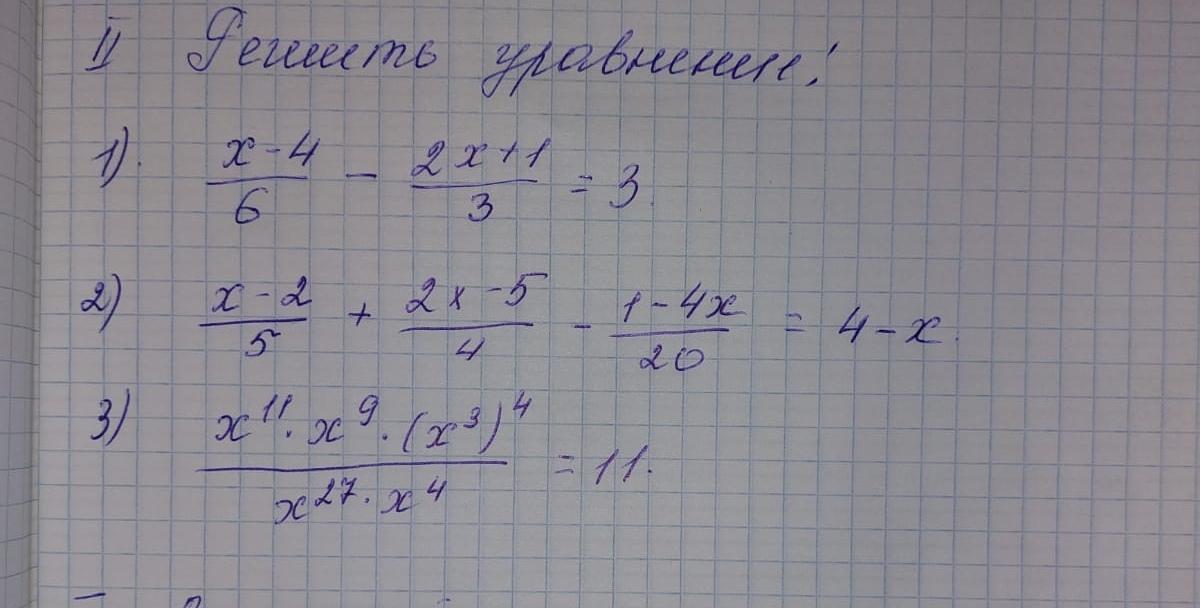 II Решить уравнения!
1). x-4/6 - 2x+1/3 = 3.
2) x-2/5 + 2x-5/4 - 1-4x/20 = 4-x.
3) x¹¹·x⁹·(x³)⁴/x²⁷·x⁴ = 11.